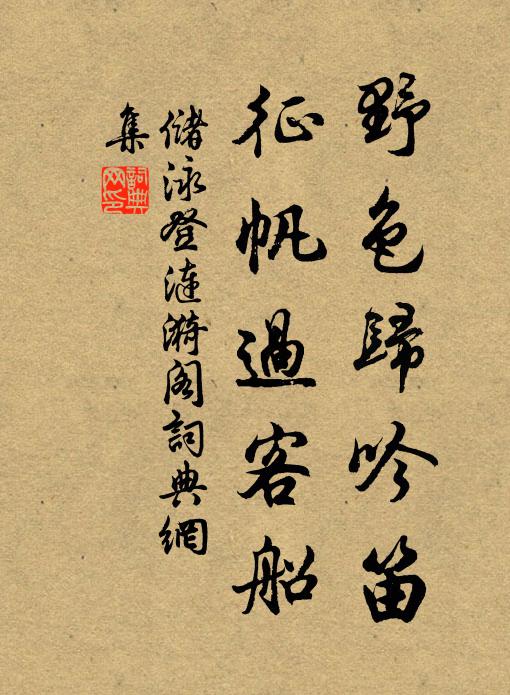 野色歸吟笛
征帆過客船
儲泳登漣漪阁詞典網
集
詞典
网印